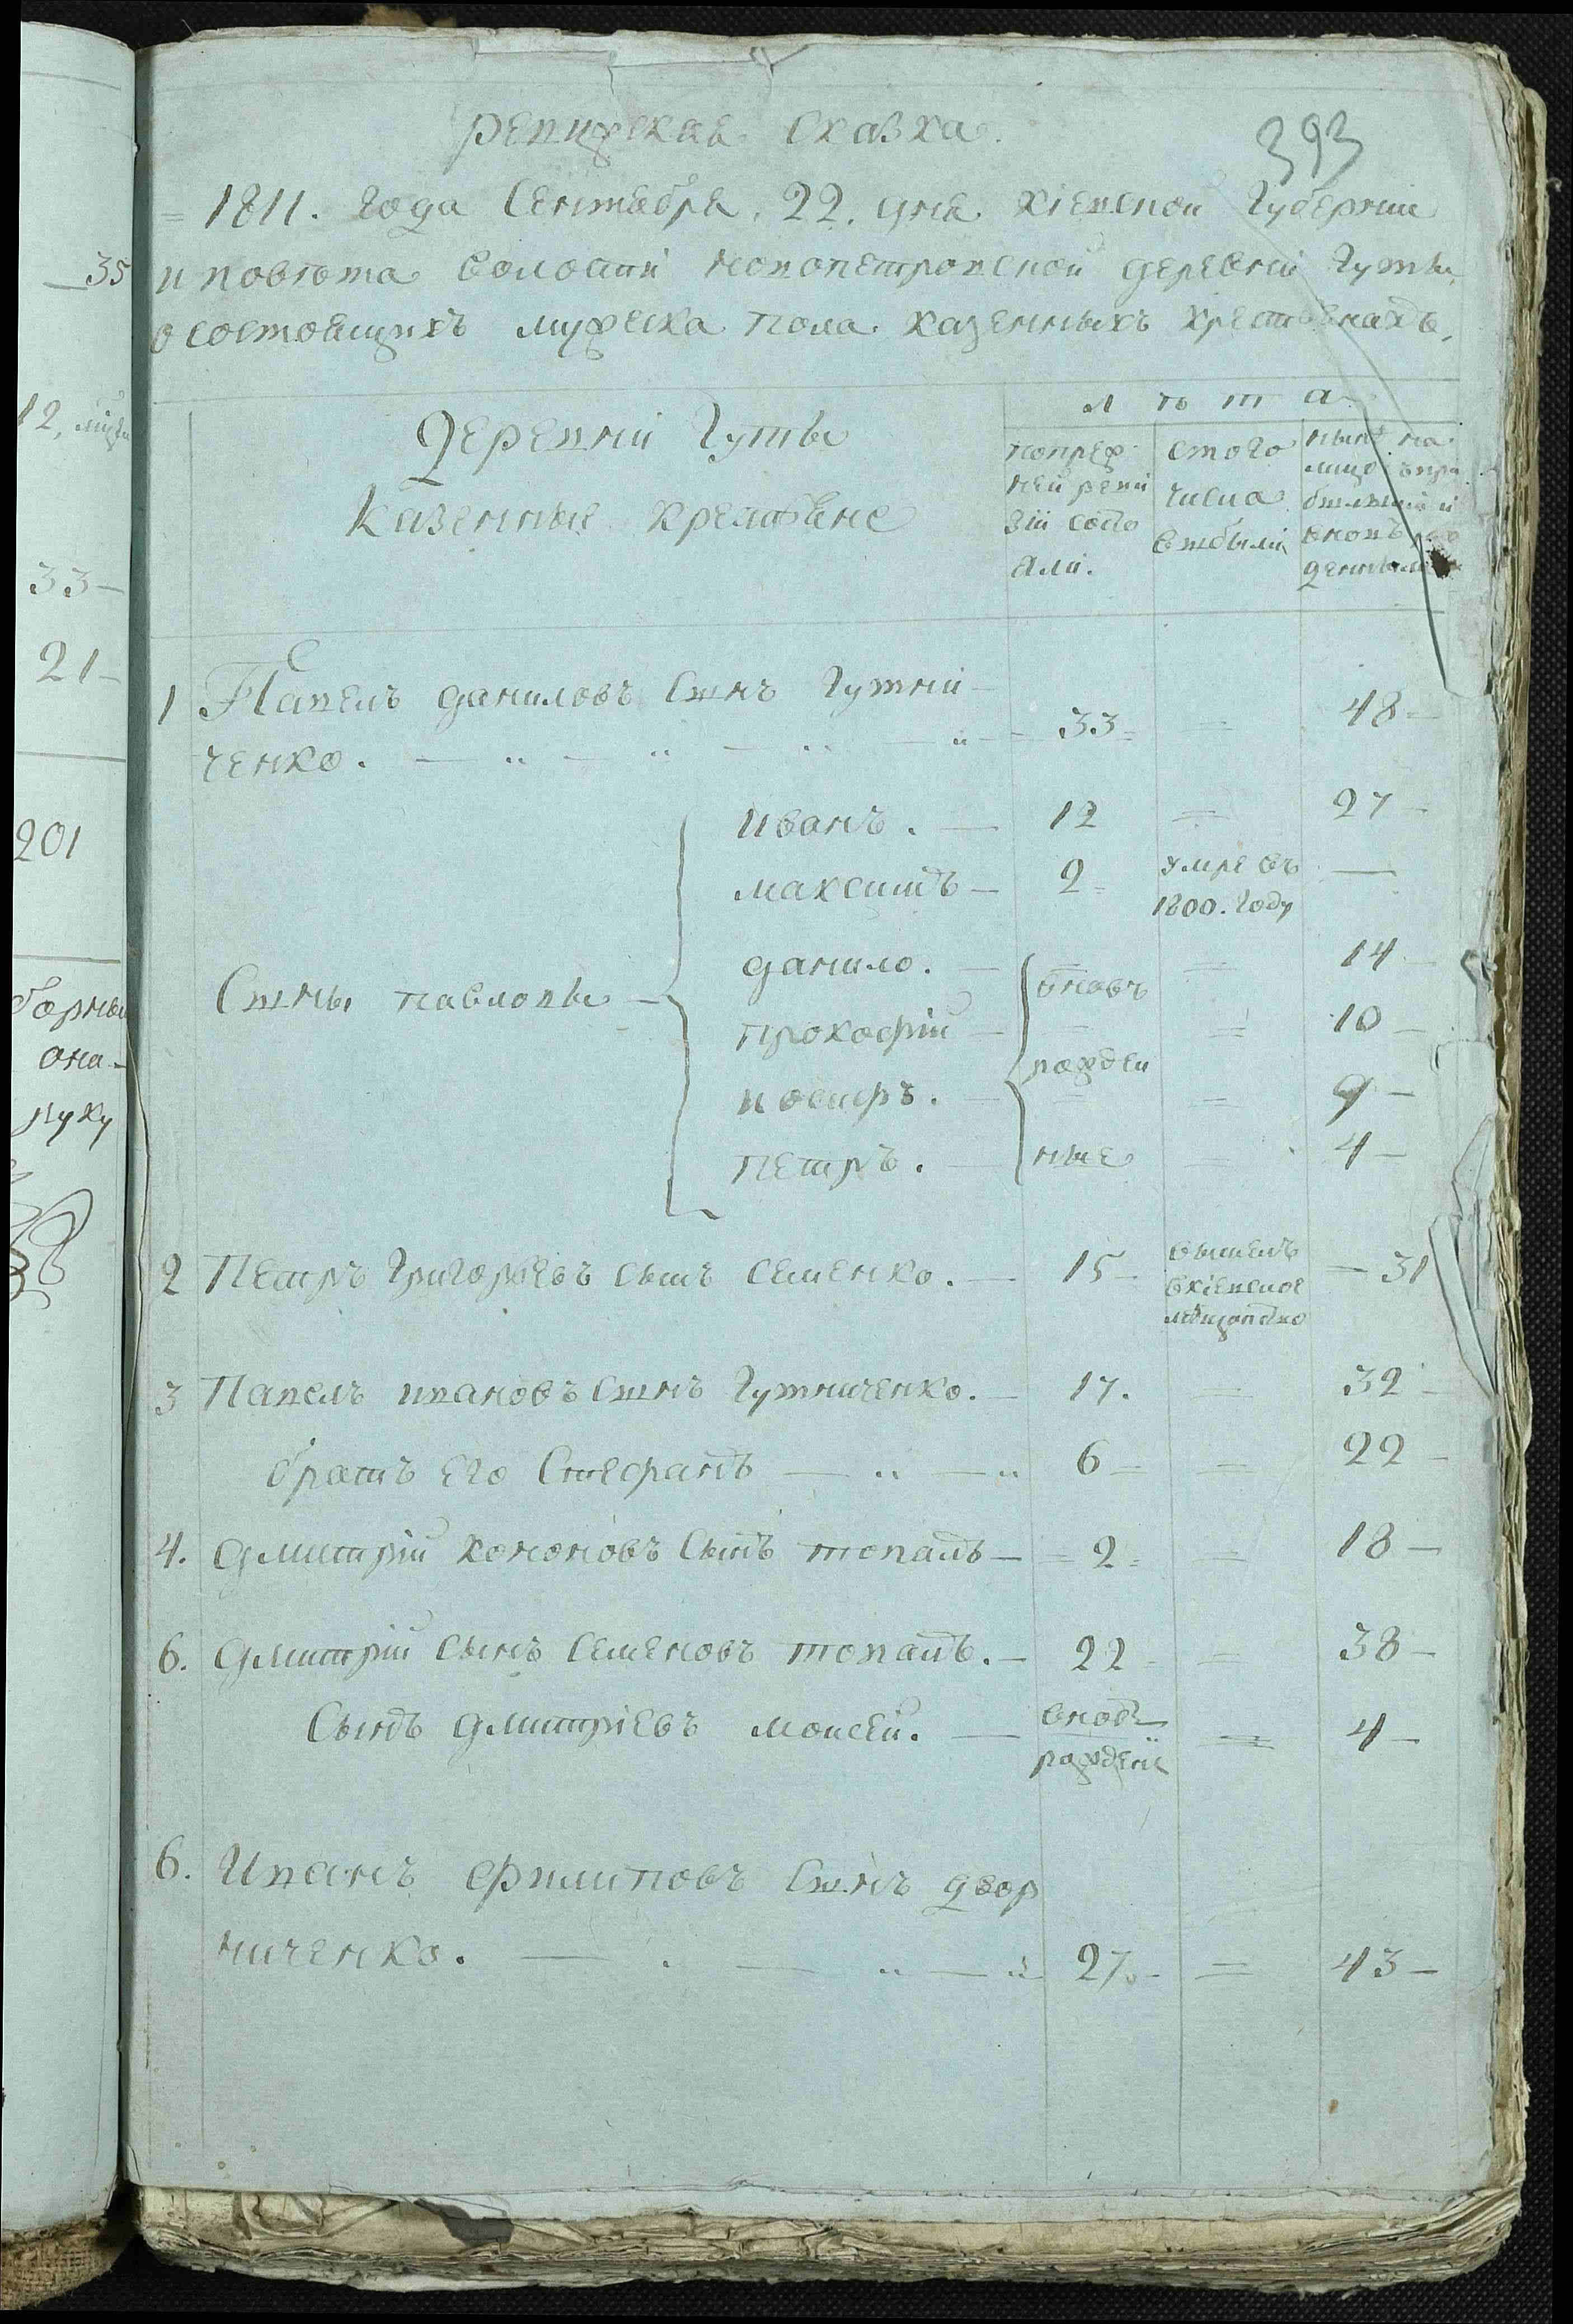 35
12,
33—
21—
201
она—
руку
393
Ревижская сказка.
= 1811. года Сентября. 22. дня кіевской Губерніи
и повѣта волости новопетровской деревни Гуты,
о состоящихъ мужеска пола казенныхъ крестьянахъ.
Деревни Гуты
Казенные крестьяне
лѣта
попреж
ней реви
зіи состо
яли.
стого
числа
выбыли
нынѣ на
лицо съпри
былыми и
вновь ро
жденными
1 Павелъ даниловъ Сынъ Гутни-
ченко. 33= = 48=
Иванъ. — 12 = 27—
максимъ— 2= умре въ 1800. году —
Сыны павловы
данило. — = 14—
прокофій — = 10—
иосифъ. — = 9—
петръ. — = 4—
вновь
рожден
ные
2 Петръ Григорьевъ сынъ Семенко. — 15— вышелъ вкіевское мѣщанство —31
3 Павелъ ивановъ Сынъ Гутниченко. — 17. = 32—
братъ его Стефанъ — 6— = 22—
4. дмитрій кононовъ Сынъ товапъ— =2= = 18—
6. дмитрій сынъ Семеновъ товапъ.— 22— = 38—
Сынъ дмитріевъ моисей. — вновь рожден = 4—
6. Иванъ филиповъ Сынъ двор
ниченко. 27.— = 43—